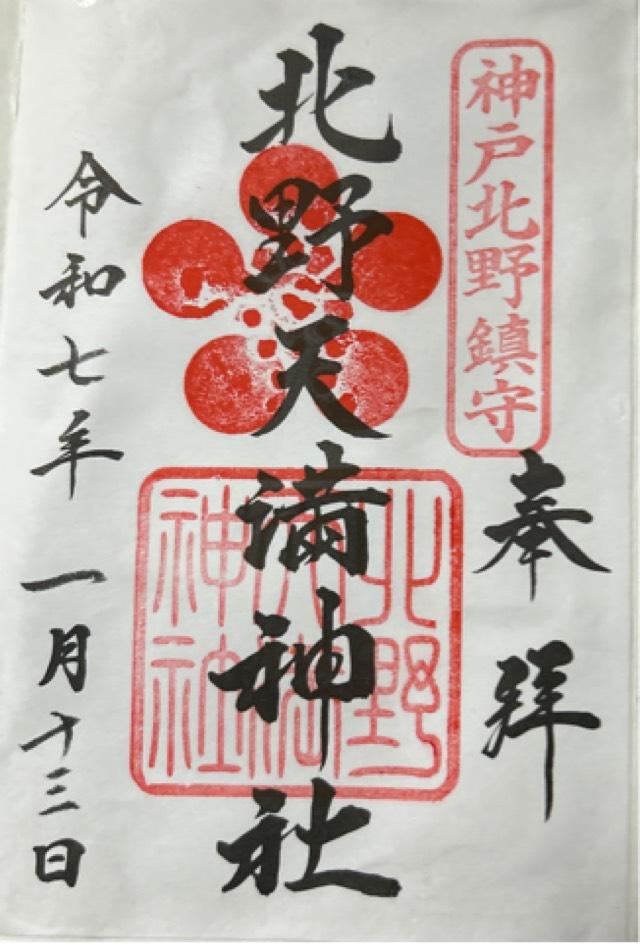 神戸北野鎮守
奉拝
北野天満神社
北野
天満
神社
令和七年 一月十三日